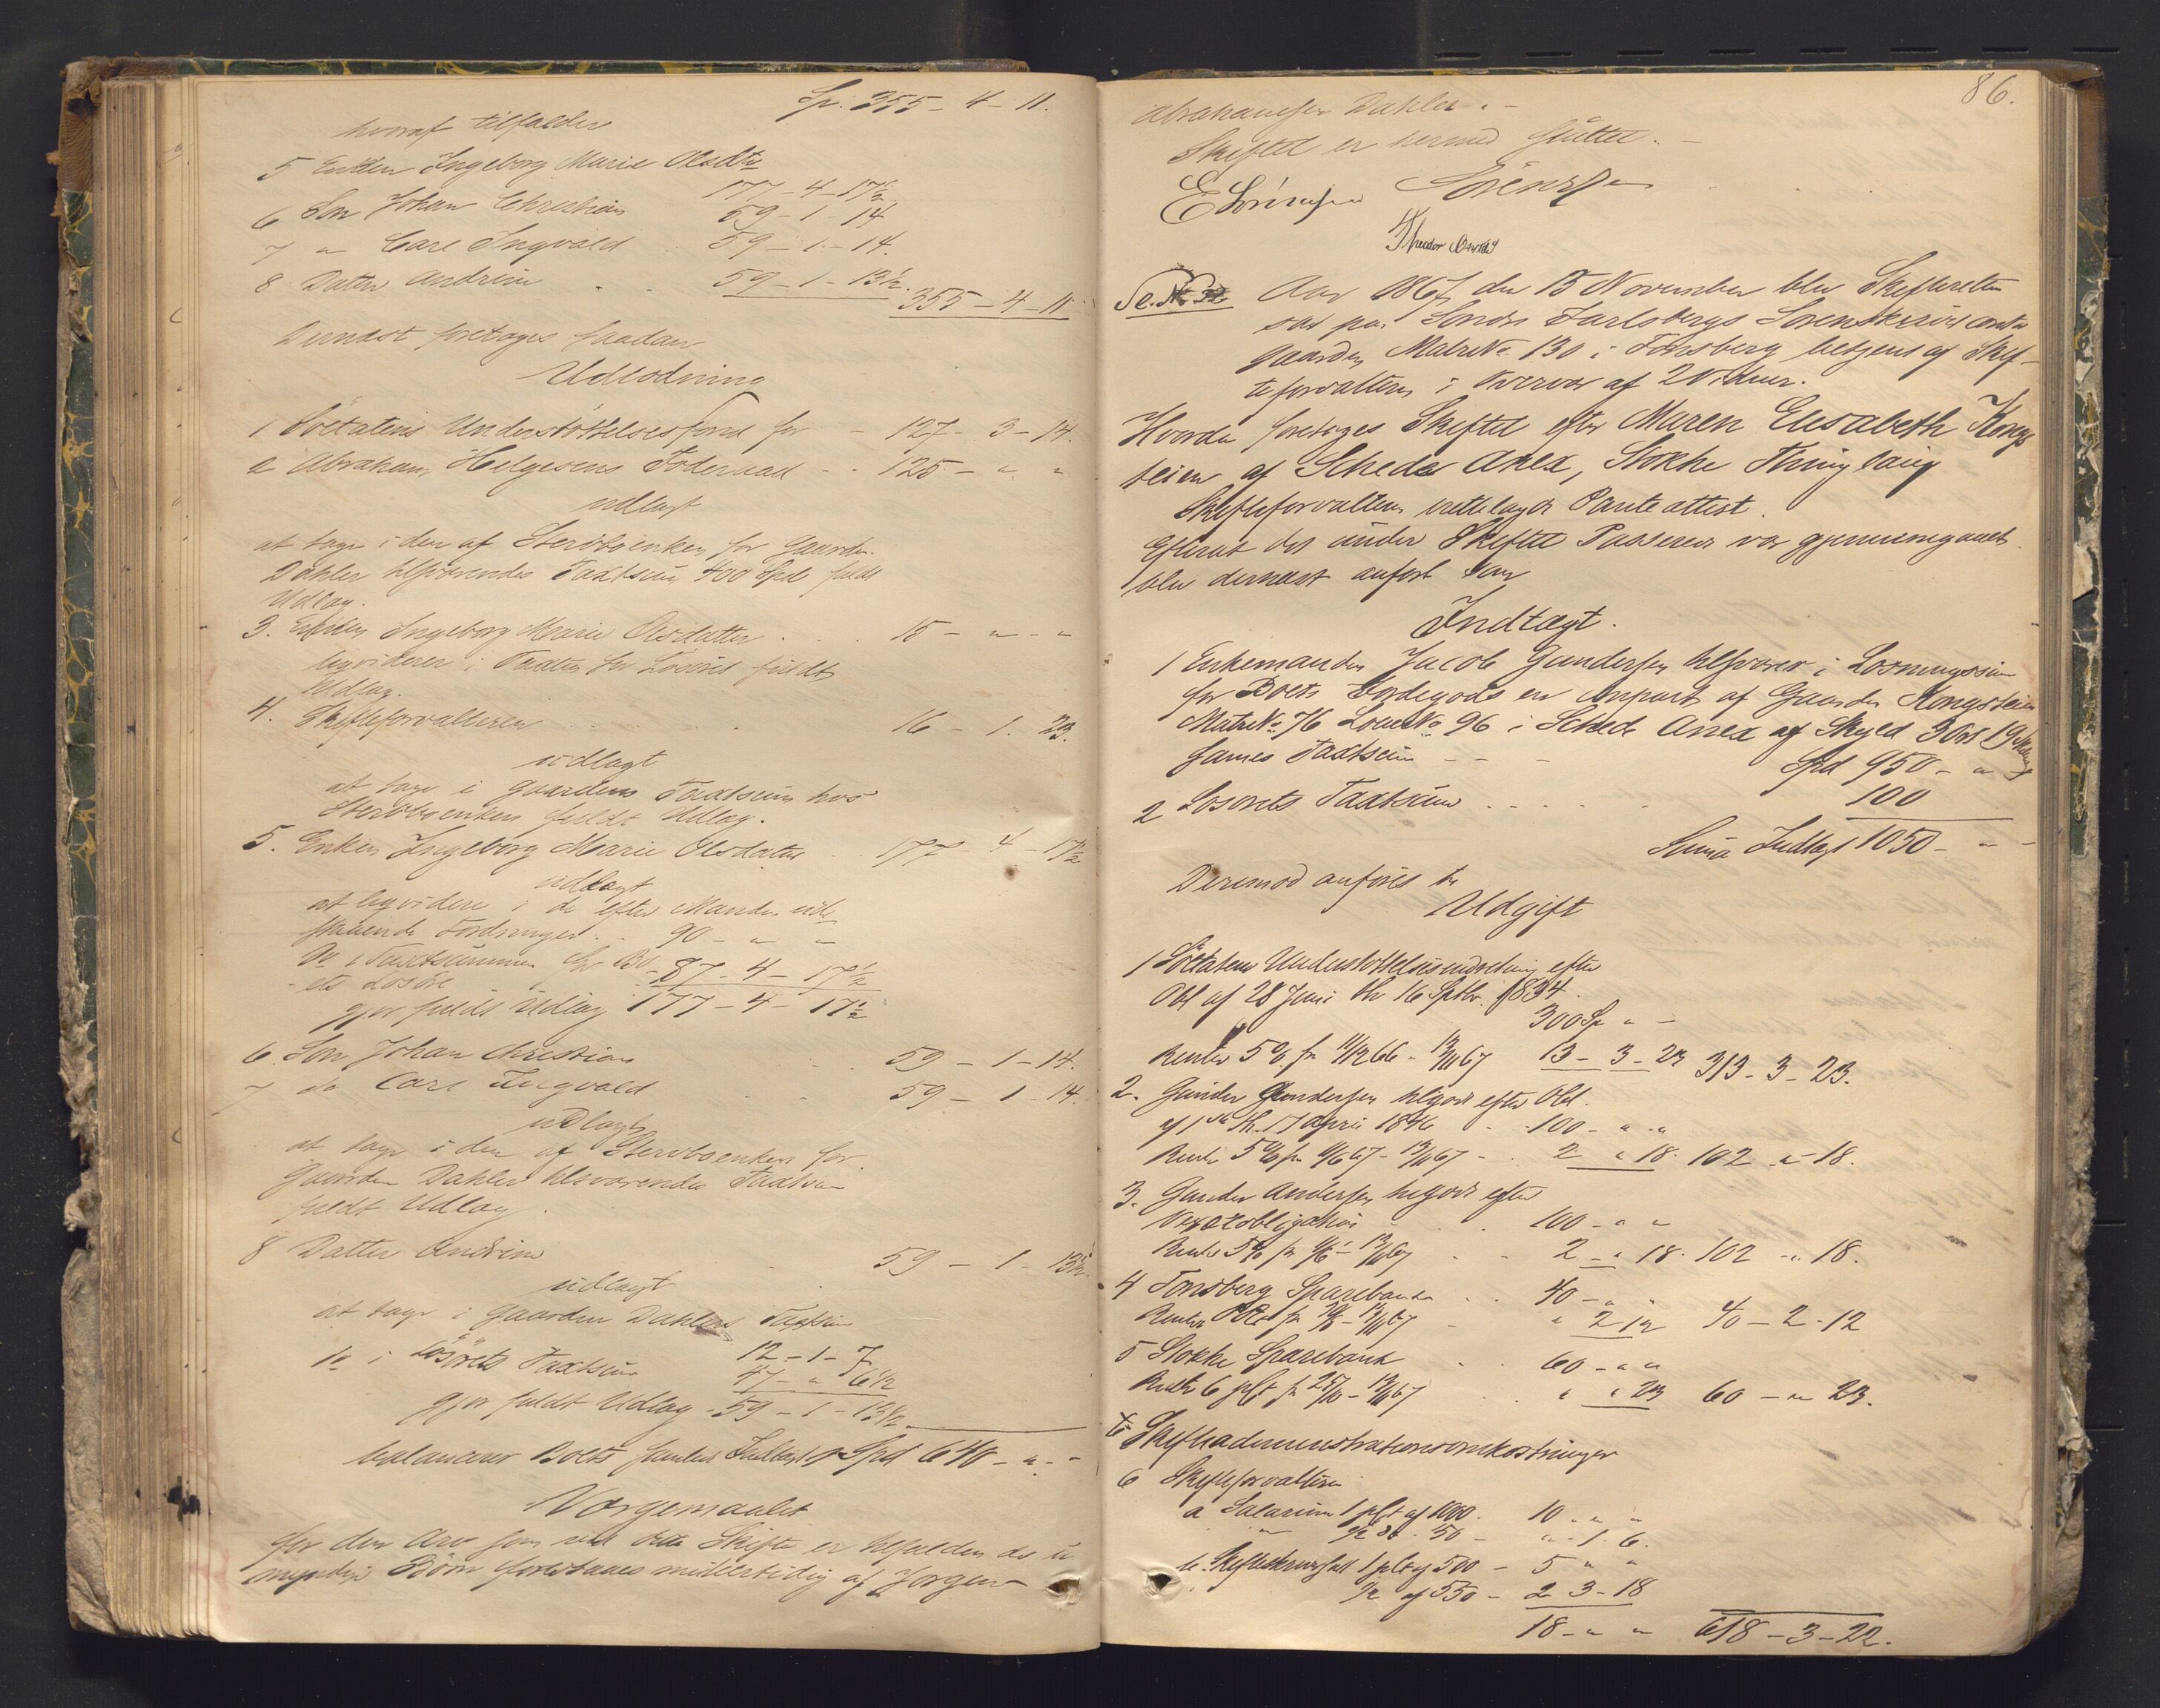 Sp. 355 - 4 - 11.
hvoraf tilfalder
5 Enken Ingeborg Marie Olsdtr
177 - 4 - 17½
6 Søn Johan Christian 59 - 1 - 14
7 " Carl Ingvald 59 - 1 - 14.
8 Datter Andrine 59 - 1 - 13½.
355 - 4 - 11
Dernæst foretoges saadan
Udlodning
1. Søetatens Understøttelsesfond for - 127 - 3 - 14.
2 Abraham Helgesens Føderaad - - 125 - " "
udlagt
at tage i den af Stervboenken for Gaarden
Dahler tilsvarende Taxtsum 400 Spd fuldt
Udlæg.
3. Enken Ingeborg Marie Olsdatter . . . 15 - " - "
liqviderer i Taxten for Løsøret fuldt
Udlæg.
4. Skifteforvalteren . . . 16 - 1. 23.
udlagt
at tage i Gaardens Taxtsum hos
Stervboenken fuldt Udlæg.
5. Enken Ingeborg Marie Olsdatter . . 177 - 4 - 17½
udlagt
at liqvidere i de efter Manden ude
staaende Fordringer . . 90 - " "
Do i Taxtsummen for Bo-
ets Løsøre 87 - 4 - 17½
gjør fuldt Udlæg 177 - 4 - 17½
6. Søn Johan Christian 59 - 1 - 14.
7 do Carl Ingvald 59 - 1 - 14.
udlagt
at tage i den af Stervboenken for
Gaarden Dahler tilsvarende Taxtsum
fuldt Udlæg.
8 Datter Andrine 59 - 1 - 13½
udlagt
at tage i Gaarden Dahlers Taxtsum
12 - 1 - 7
Do i Løsørets Taxtsum 47 - " 6½
gjør fuldt Udlæg - 59 - 1 - 13½
balancerer Boets samlede Indtægt Spd 640 - " -
Værgemaalet
for den Arv som ved dette Skifte er tilfalden de u-
myndige Børn forestaaes midlertidig af Jørgen
86.
Abrahamsen Dahler. -
Skiftet er hermed sluttet. -
E Sørensen Sørensen
Theodor
Aar 1867 den 15 November blev Skifteretten
sat paa Søndre Jarlsbergs Sorenskrivercontor
Gaarden MatrNo 130 i Tønsberg betjent af Skif-
teforvalteren i Overvær af 2 Vidner.
Hvorda foretoges Skiftet efter Maren Elisabeth Kong
steien af Schede Anex, Stokke Thinglaug
Skifteforvalteren fremlagde Panteattest.
Efterat det under Skiftet Passerede var gjennemgaaet
blev dernæst anført som
Indtægt.
1 Enkemanden Jacob Gundersen tilsvarer i Løsningssum
for Boets Jordegods en Anpart af Gaarden Kongsteien
MatrNo 76 LøbeNo 96 i Schede Anex af Skyld 3 Ort 19 Skill
sammes Taxtsum - - - Spd 950 - "
2 Løsørets Taxtsum . . . . 100
Suma Indtægt 1050 - " -
Derimod anføres til
Udgift
1 Søetatens Understøttelsesindretning efter
Obl af 28 Juni th 16 Septbr. 1834.
300 Sp " -
Renter 5% fra 11/12 66 - 15/11 67 13 - 3 - 23 313 - 3 - 23.
2. Gunder Gundersen tilgode efter Obl.
af 1ste th. 17 April 1846 - . 100 - " "
Rente 5% fra 11/6 67 - 15/11 67 - . 2 " 18. 102 " 18.
3. Gunder Andersen tilgode efter
Vexelobligation - . . 100 - " "
Rente 5% fra 11/6 - 15/11 67 . . 2 - " 18. 102 " 18.
4 Tønsberg Sparebank . . 40 - "
" 2 12 40 - 2 - 12
5 Stokke Sparebank . . 60 - " "
Rente 6 pCt fra 25/10 - 15/11 67 . " " 23 60 - " 23.
Skifteadministrationsomkostninger
6 Skifteforvalteren
a Salarium 1 pCt af 1000. 10 . " "
½ do - 50 - " - 1. 6.
1 pCt af 500 - 5 " "
½ af 550 - 2 - 3 - 18
18 - " " 618 - 3 - 22.